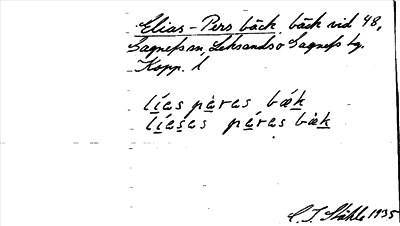 Elias-Pers bäck, bäck vid 48,
Sagnefs sn, Leksands o Gagnefs tg.
Kopp. l
líes pères bæ̀k
líeses péres bæ̀k
C. I. Ståhle 1935